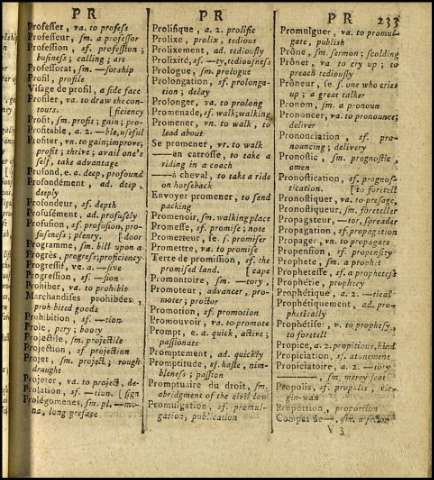 P R
Professer, va. to profess
Professeur, sm. a professor
Profession, sf. profession ;
business ; calling ; art
Professorat, sm. —sorship
Profil, profile
Visage de profil, a side face
Profiler, va. to draw the con-
tours. [ficiency
Profit, sm. profit ; gain ; pro-
Profitable, a. 2. —ble, useful
Profiter, vn. to gain; improve;
profit ; thrive ; avail one's
self, take advantage
Profond, e. a. deep, profound
Profondément, ad. deep,
deeply
Profondeur, sf. depth
Profusément, ad. profusely
Profusion, sf. profusion, pro-
fuseness ; plenty. [door
Programme, sm. bill upon a
Progrès, progress; proficiency
Progressif, ve. a. —sive
Progression, sf. —sion
Prohiber, va. to prohibit
Marchandises prohibées,
prohibited goods
Prohibition, sf. —tion
Proie, prey ; booty
Projectile, sm. projectile
Projection, sf. projection
Projet, sm. project ; rough
draught
Projeter, va. to project, de-
Prolation, sf. —tion [sign
Prolégomenes, sm. pl. —me-
na, long preface
P R
Prolifique, a. 2. prolific
Prolixe, prolix, tedious
Prolixement, ad. tediously
Prolixité, sf. —ty, tediousness
Prologue, sm. prologue
Prolongation, sf. prolonga-
tion ; delay
Prolonger, va. to prolong
Promenade, sf. walk; walking
Promener, vn. to walk, to
lead about
Se promener, vr. to walk
——en carrosse, to take a
riding in a coach
——à cheval, to take a ride
on horseback
Envoyer promener, to send
packing
Promenoir, sm. walking place
Promesse, sf. promise ; note
Prometteur, se f. promiser
Promettre, va. to promise
Terre de promission, sf. the
promised land. [cape
Promontoire, sm. —tory,
Promoteur, advancer, pro-
moter ; proctor
Promotion, sf. promotion
Promouvoir, va. to promote
Prompt, e a. quick, active ;
passionate
Promptement, ad. quickly
Promptitude, sf. haste, nim-
bleness ; passion
Promptuaire du droit, sm.
abridgment of the civil law
Promulgation, sf. promul-
gation, publication
P R 233
Promulguer, va. to promul-
gate, publish
Prône, sm. sermon ; scolding
Prôner, va. to cry up ; to
preach tediously
Prôneur, se f. one who cries
up ; a great talker
Pronom, sm. a pronoun
Prononcer, va. to pronounce;
deliver
Prononciation, sf. pro-
nouncing ; delivery
Pronostic, sm. prognostic,
omen
Pronostication, sf. prognosti-
cation. [to foretell
Pronostiquer, va. to presage,
Pronostiqueur, sm. foreteller
Propagateur, —tor, spreader
Propagation, sf. propagation
Propager, vn. to propagate
Propension, sf. propensity
Prophete, sm. a prophet
Prophetesse, sf. a prophetess
Prophétie, prophecy
Prophétique, a. 2. —tical
Prophétiquement, ad. pro-
phetically
Prophétiser, va. to prophesy,
to foretell
Propice, a. 2. propitious, kind
Propiciation, sf. atonement
Propiciatoire, a. 2. —tory
——, sm. mercy seat
Propolis, sf. propolis,
Proportion, proportion
V 3